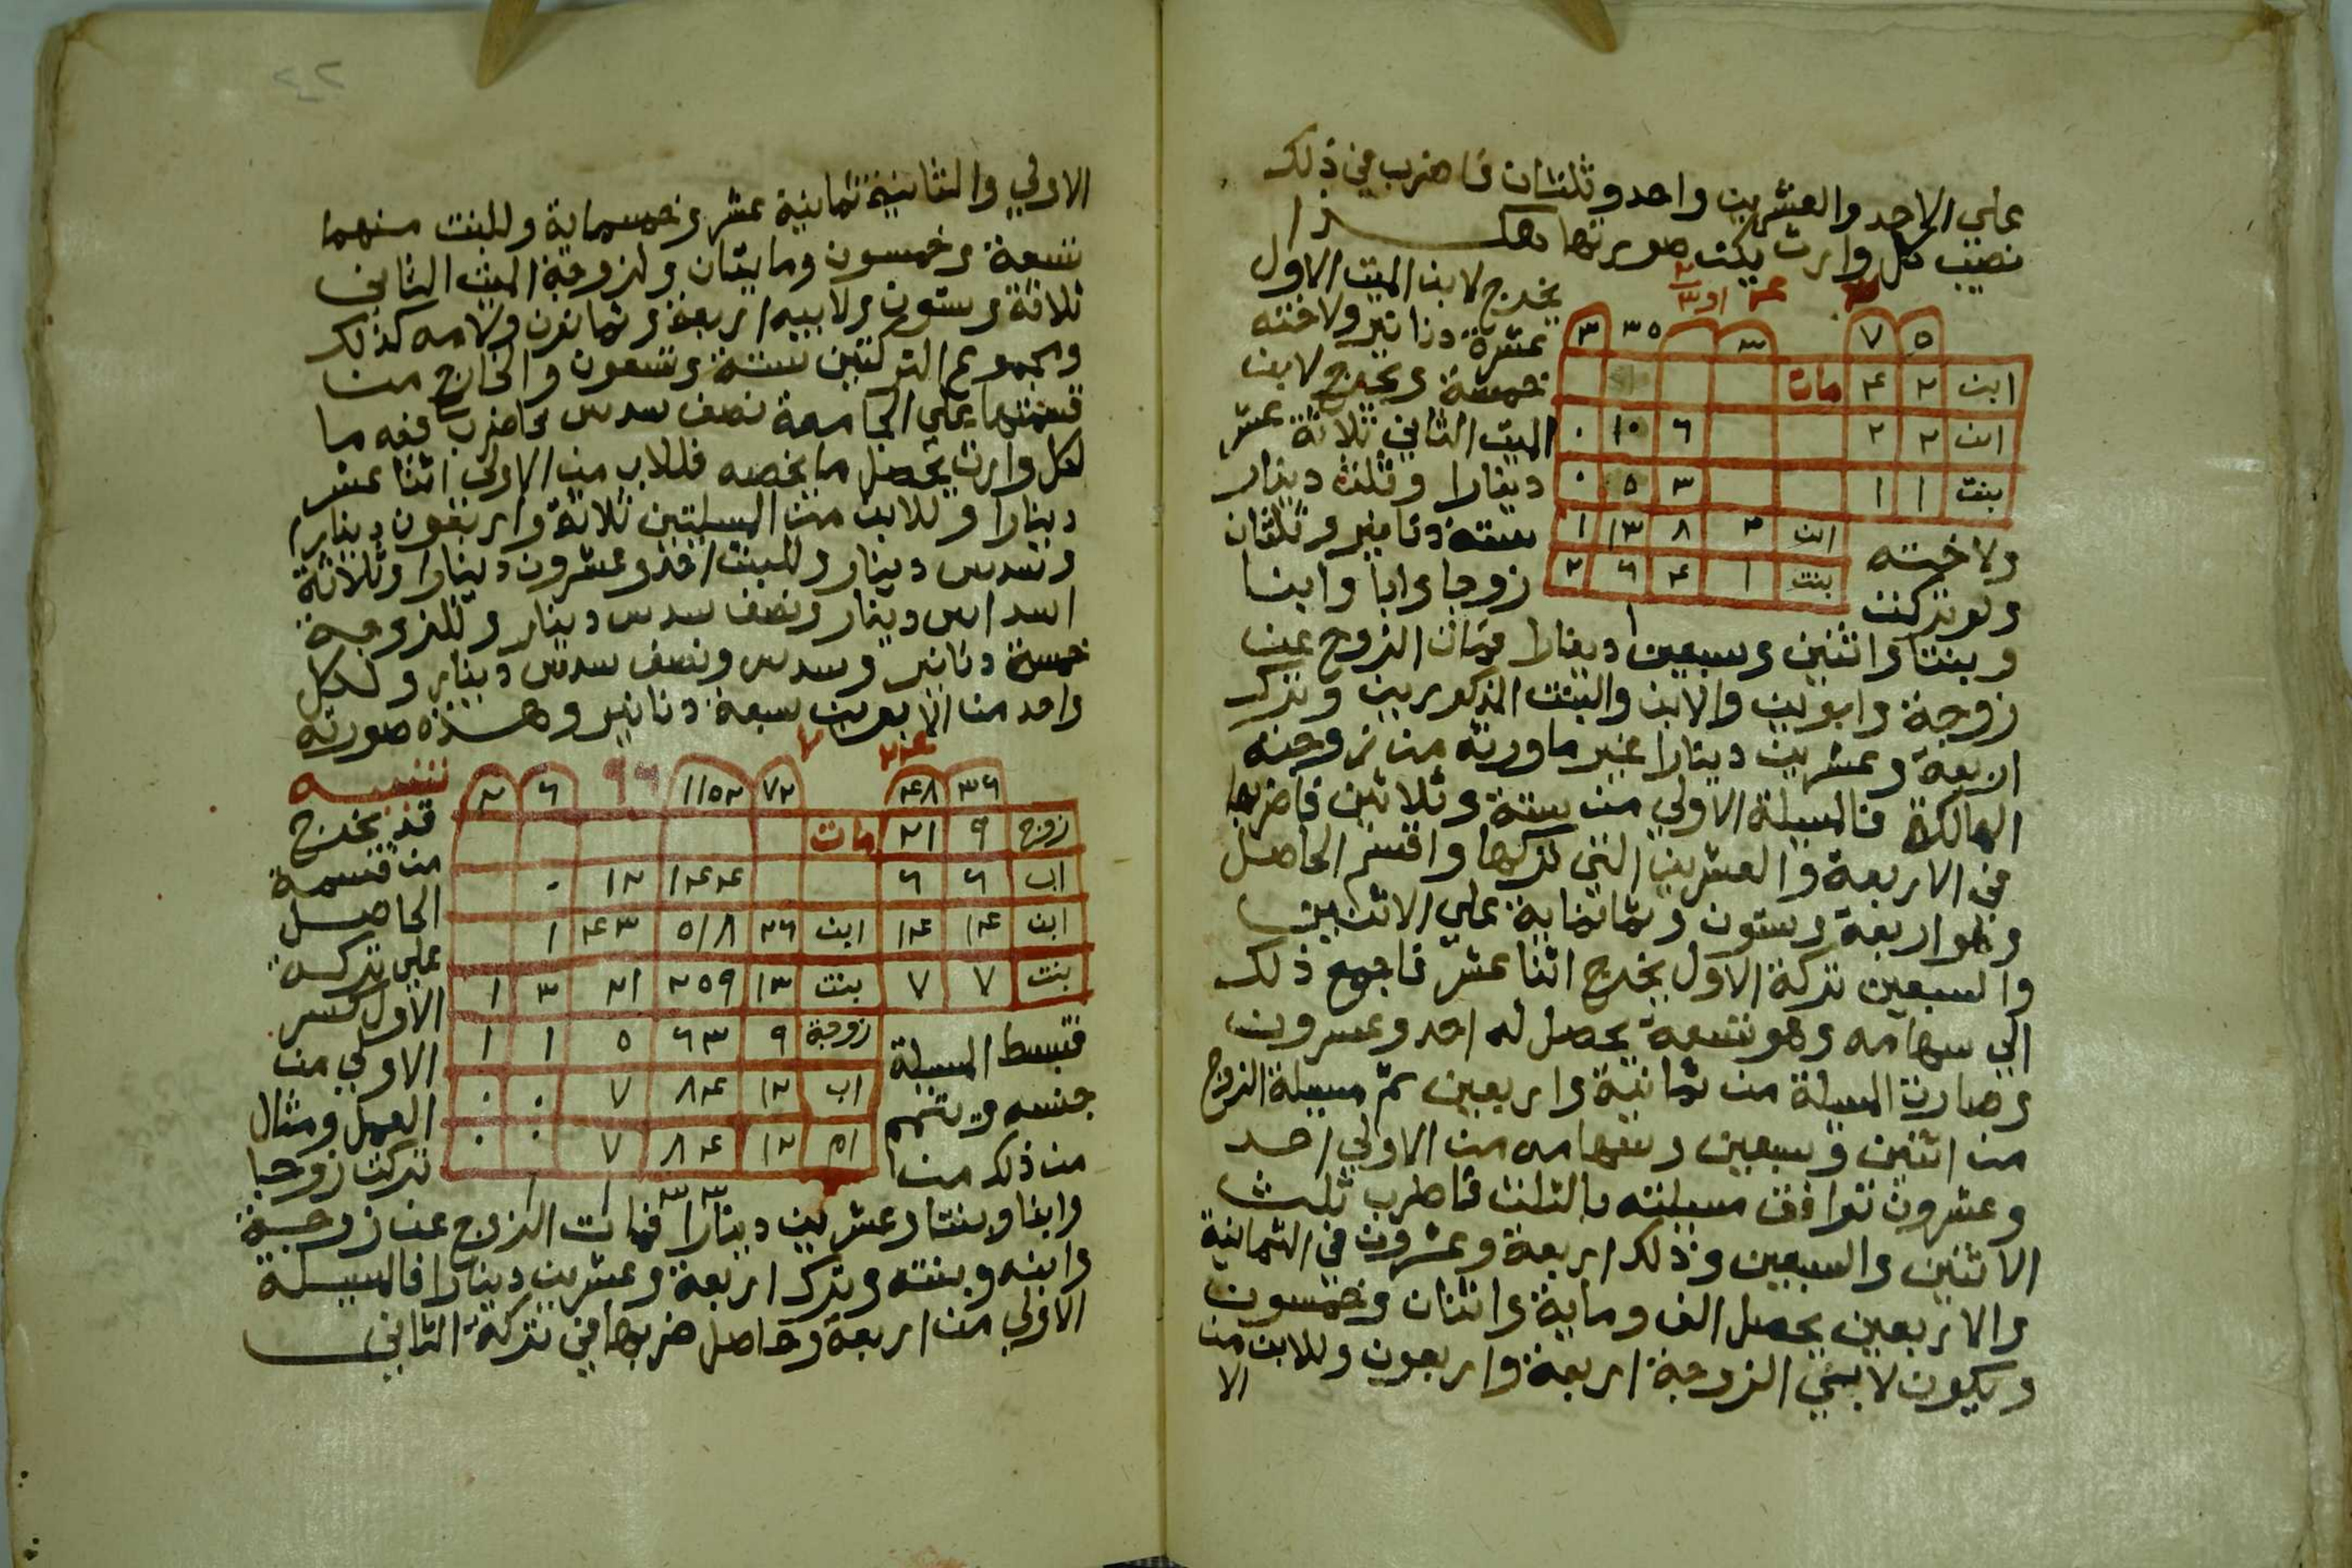 على الاحد والعشرين واحد وثلثان فاضرب في ذلك
نصيب كل وارث يكن صورتها هكذا
٢
٣ ١و
٤
يخرج لابن الميت الاول
٥ ٧ ٣ ٣٥ ٣
عشرة دنانير ولاخته
ابن ٢ ٤ مات
خمسة ويخرج لابن
ابن ٢ ٢ ٦ ١٠ ٠
الميت الثاني ثلاثة عشر
بنت ١ ١ ٣ ٥ ٠
دينارا وثلث دينار
ابن ٢ ٨ ١٣ ١
ولاخته ستة دنانير وثلثان
بنت ١ ٤ ٦ ٢
ولو تركت زوجا وابا وابنا
وبنتا واثنين وسبعين دينارا فمات الزوج عن
زوجة وابوين والابن والبنت المذكورين وترك
اربعة وعشرين دينارا غير ما ورثه من زوجته
الهالكة فالمسيلة الاولي من ستة وثلاثين فاضربها
في الاربعة والعشرين التي تركها واقسم الحاصل
وهو اربعة وستون وثمانماية علي الاثنين
والسبعين تركة الاول يخرج اثنا عشر فاجمع ذلك
الي سهامه وهو تسعة يحصل له احد وعشرون
وصارت المسيلة من ثمانية واربعين ثم مسيلة الزوج
من اثنين وسبعين وسهامه من الاولي احد
وعشرون توافق مسيلته بالثلث فاضرب ثلث
الاثنين والسبعين وذلك اربعة وعشرون في الثمانية
والاربعين يحصل الف وماية واثنان وخمسون
ويكون لابي الزوجة اربعة واربعون وللابن من
الا
الاولي والثانية ثمانية عشر وخمسماية وللبنت منهما
تسعة وخمسون ومايتان ولزوجة الميت الثاني
ثلاثة وستون ولابيه اربعة وثمانون ولامه كذلك
ومجموع التركتين ستة وتسعون والخارج من
قسمتها علي الجامعة نصف سدس فاضرب فيه ما
لكل وارث يحصل ما يخصه فللاب من الاولي اثنا عشر
دينارا وللابن من المسيلتين ثلاثة واربعون دينارا
وسدس دينار وللبنت احد وعشرون دينارا وثلاثة
اسداس دينار ونصف سدس دينار وللزوجة
خمسة دنانير وسدس ونصف سدس دينار ولكل
واحد من الابوين سبعة دنانير وهذه صورته
٢٤ ٧
٣٦ ٤٨ ٧٢ ١١٥٢ ٩٦ ٦ ٢
تنبيه
زوج ٩ ٢١ مات
قد يخرج
اب ٦ ٦ ١٤٤ ١٢ ٠
من قسمة
الحاصل
ابن ١٤ ١٤ ابن ٢٦ ٥١٨ ٤٣ ١
علي تركة
بنت ٧ ٧ بنت ١٣ ٢٥٩ ٢١ ٣ ١
الاول كسر
زوجة ٩ ٦٣ ٥ ١ ١
فتبسط المسيلة الاولي من
اب ١٢ ٨٤ ٧ ٠ ٠
جنسه ويتمم العمل ومثال
ام ١٢ ٨٤ ٧ ٠ ٠
من ذلك من تركت زوجا
وابنا وبنتا وعشرين دينارا فمات الزوج عن زوجة
وابنه وبنته وترك اربعة وعشرين دينارا فالمسيلة
الاولي من اربعة وحاصل ضربها في تركة الثاني